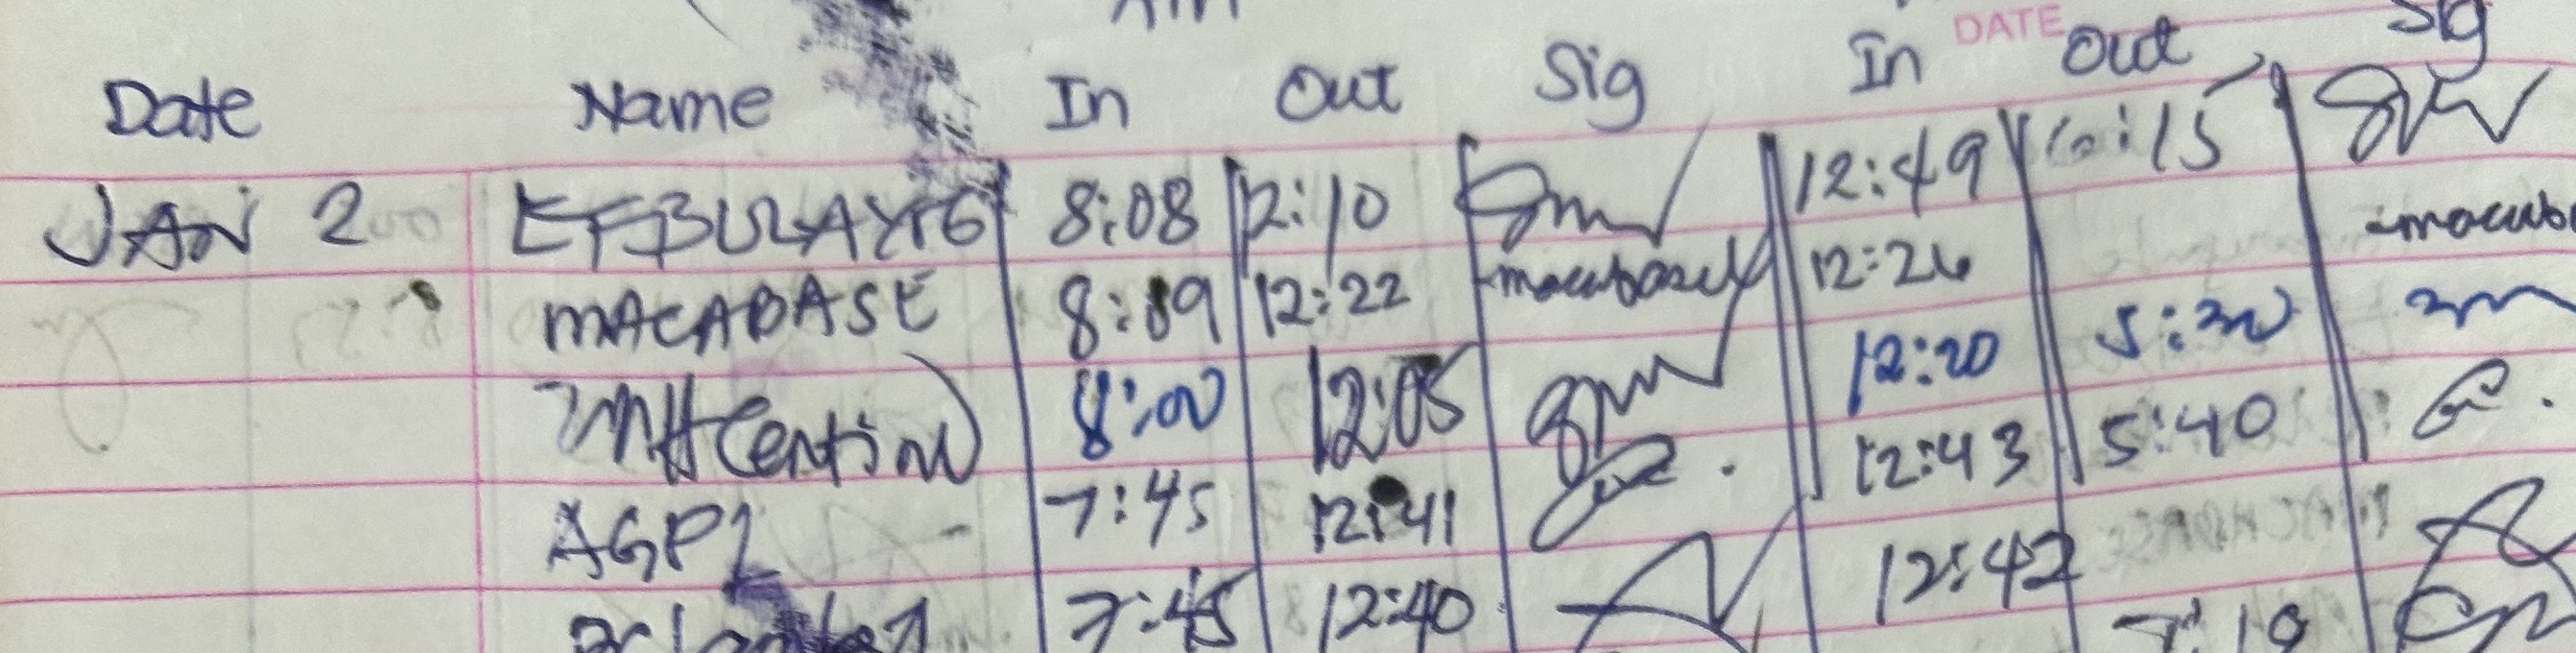 DATE
Date Name In Out Sig In Out Sig
JAN 2 EFBULAYUG 8:08 12:10 12:49 :15
MACABASE 8:09 12:22 macabase 12:26 macab
8:00 12:05 12:20 5:30
AGPI 7:45 12:41 12:43 5:40
7:45 12:40 12:42
7:19